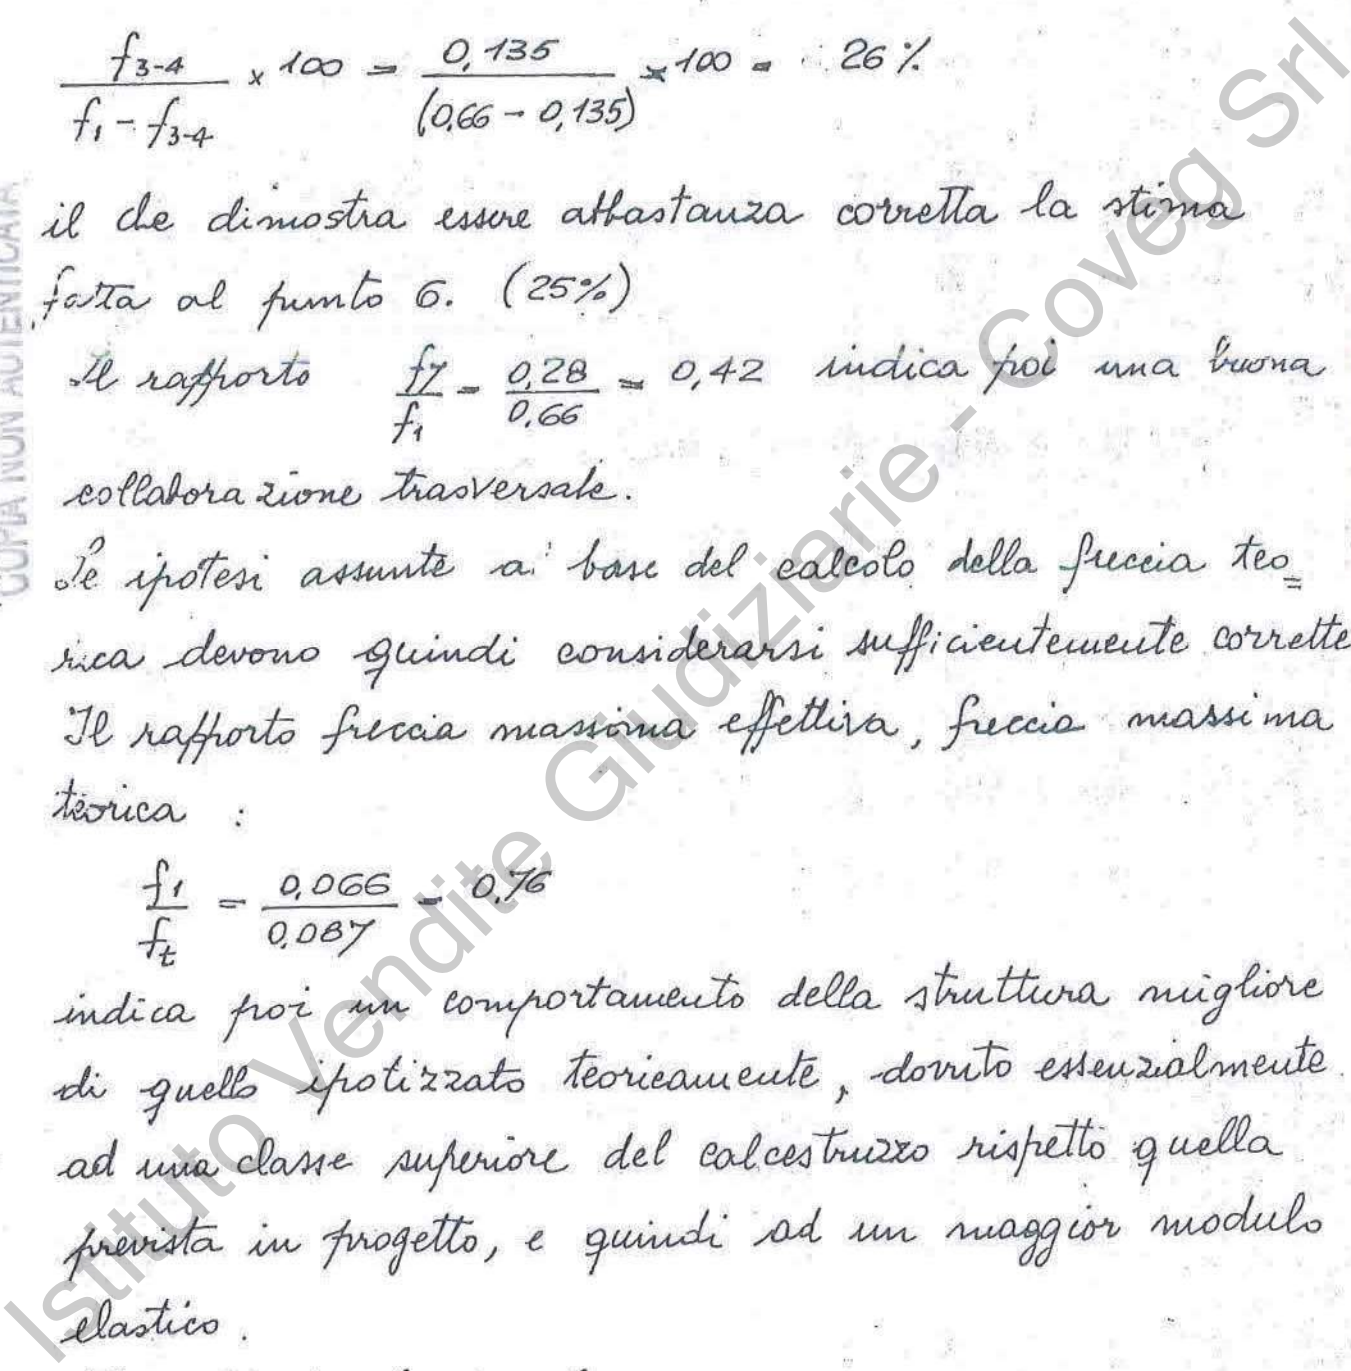 f3-4 / (f1 - f3-4) × 100 = 0,135 / (0,66 - 0,135) × 100 = 26 %
il che dimostra essere abbastanza corretta la stima
fatta al punto 6. (25%)
Il rapporto f7 / f1 = 0,28 / 0,66 = 0,42 indica poi una buona
collaborazione trasversale.
Le ipotesi assunte a base del calcolo della freccia teo=
rica devono quindi considerarsi sufficientemente corrette
Il rapporto freccia massima effettiva, freccia massima
teorica :
f1 / ft = 0,066 / 0,087 = 0,76
indica poi un comportamento della struttura migliore
di quello ipotizzato teoricamente, dovuto essenzialmente
ad una classe superiore del calcestruzzo rispetto quella
prevista in progetto, e quindi ad un maggior modulo
elastico.
COPIA NON AUTENTICATA
Istituto Vendite Giudiziarie - Coveg Srl